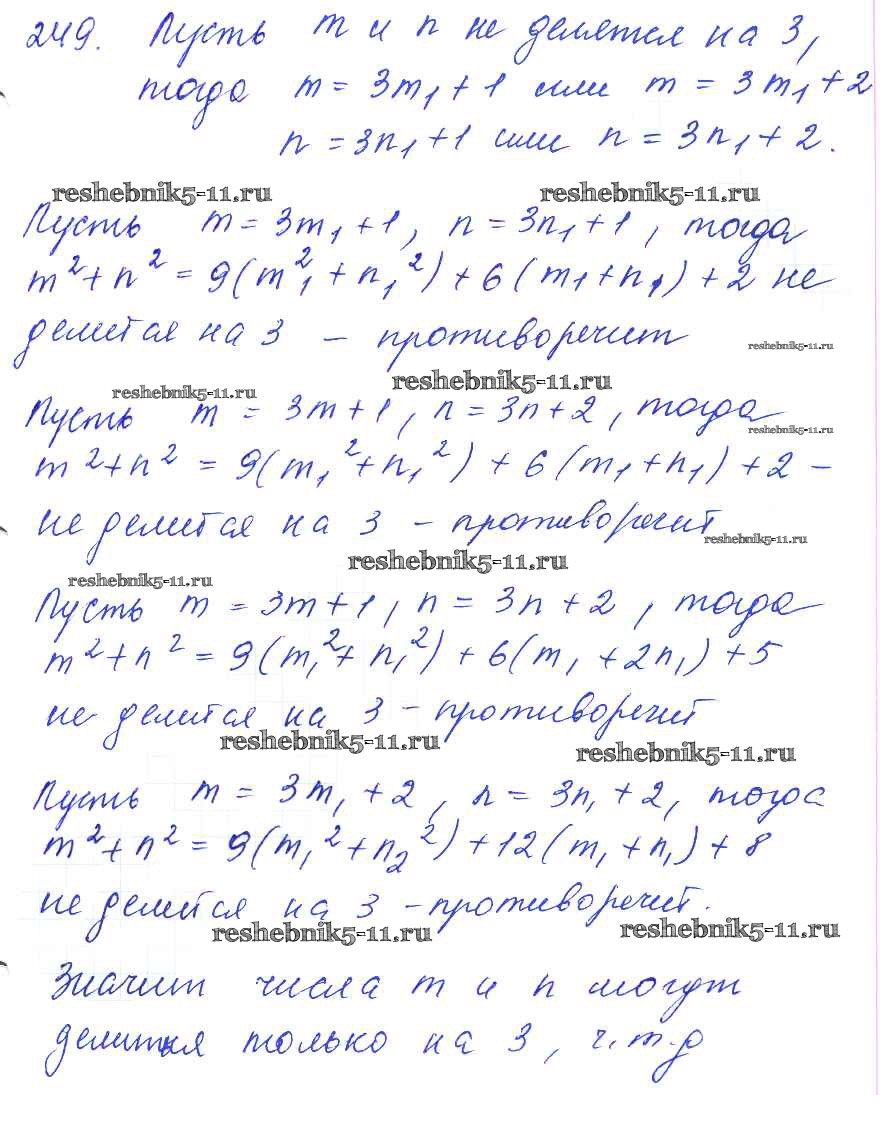 249. Пусть m и n не делятся на 3,
тогда m = 3m₁ + 1 или m = 3m₁ + 2
n = 3n₁ + 1 или n = 3n₁ + 2.
reshebnik5-11.ru reshebnik5-11.ru
Пусть m = 3m₁ + 1, n = 3n₁ + 1, тогда
m² + n² = 9(m₁² + n₁²) + 6(m₁ + n₁) + 2 не
делится на 3 – противоречит
reshebnik5-11.ru
reshebnik5-11.ru reshebnik5-11.ru
Пусть m = 3m + 1, n = 3n + 2, тогда
reshebnik5-11.ru
m² + n² = 9(m₁² + n₁²) + 6(m₁ + n₁) + 2 –
не делится на 3 – противоречит
reshebnik5-11.ru
reshebnik5-11.ru reshebnik5-11.ru
Пусть m = 3m + 1, n = 3n + 2, тогда
m² + n² = 9(m₁² + n₁²) + 6(m₁ + 2n₁) + 5
не делится на 3 – противоречит
reshebnik5-11.ru reshebnik5-11.ru
Пусть m = 3m₁ + 2, n = 3n₁ + 2, тогда
m² + n² = 9(m₁² + n₂²) + 12(m₁ + n₁) + 8
не делится на 3 – противоречит.
reshebnik5-11.ru reshebnik5-11.ru
Значит числа m и n могут
делиться только на 3, ч.т.д